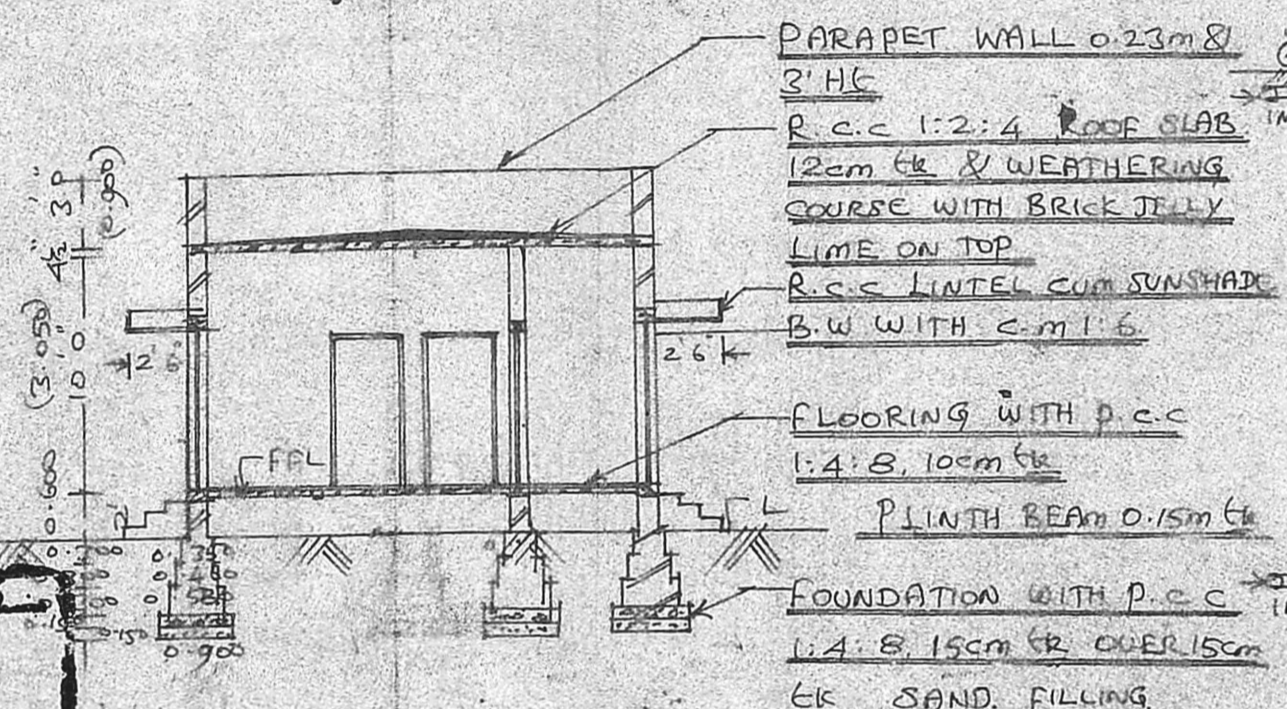 PARAPET WALL 0.23m &
3' Ht
R.C.C 1:2:4 ROOF SLAB
12cm tk & WEATHERING
COURSE WITH BRICK JELLY
LIME ON TOP
R.C.C LINTEL CUM SUNSHADE
B.W WITH C.M 1:6.
FLOORING WITH P.C.C
1:4:8, 10cm tk
PLINTH BEAM 0.15m tk
FOUNDATION WITH P.C.C
1:4:8, 15cm tk OVER 15cm
tk SAND. FILLING
3'0"
(0.900)
4½"
10'0"
(3.050)
0.600
2'
2'6"
2'6"
FFL
0.150
0.900